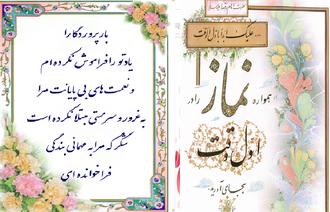 بار پروردگارا
یاد تو را فراموش نکرده ام
و نعمت های بی پایانت مرا
به غرور و سرمستی مبتلا نکرده است
شکر که مرا به مهمانی بندگی
فرا خوانده ای
نماز
همواره
را در
اول وقت
بجای آرید